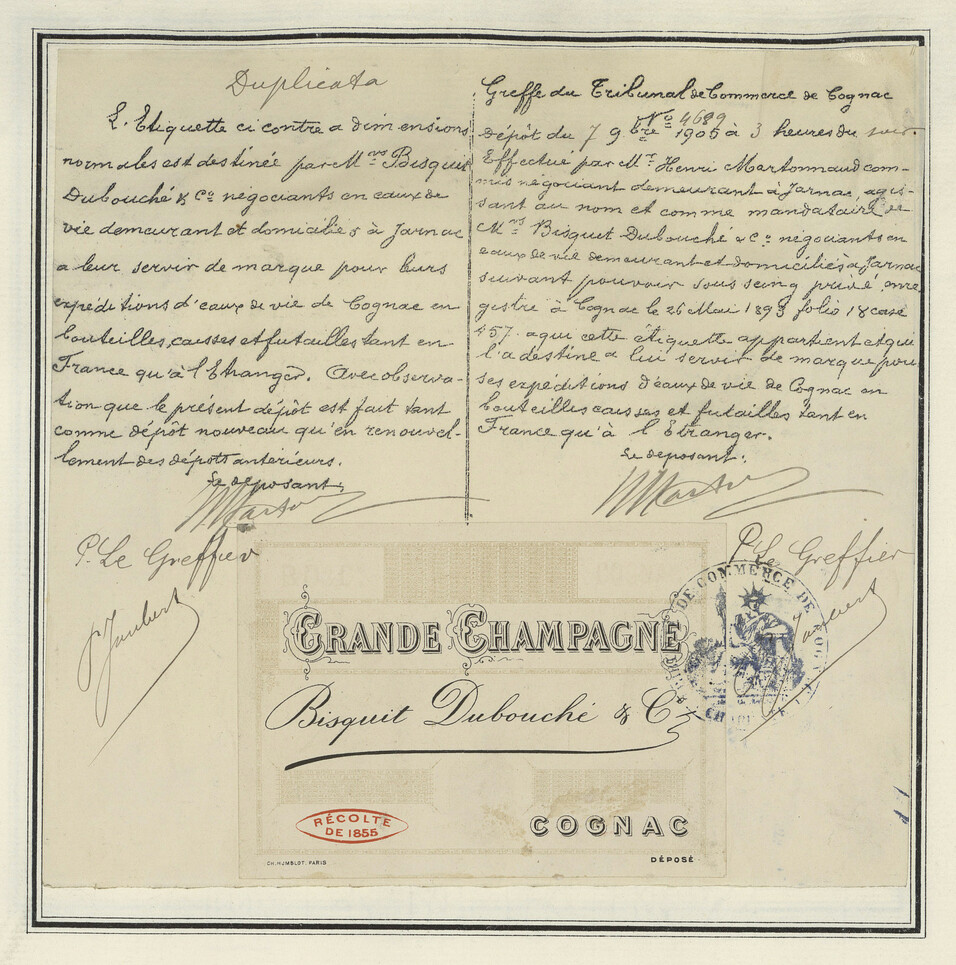 Duplicata
L'Etiquette ci contre a dimensions
normales est destinée par Mrs Bisquit
Dubouché & Co négociants en eaux de
vie demeurant et domiciliés à Jarnac
a leur servir de marque pour leurs
expéditions d'eaux de vie de Cognac en
bouteilles, caisses et futailles tant en
France qu'à l'Etranger. Avec observa-
tion que le présent dépôt est fait tant
comme dépôt nouveau qu'en renouvel-
lement des dépôts antérieurs.
Le deposant,
P. Le Greffier
Greffe du Tribunal de Commerce de Cognac
No 4689
dépôt du 7 9bre 1905 à 3 heures du soir.
Effectué par Mr Henri Martonnaud com-
mis négociant demeurant à Jarnac agis-
sant au nom et comme mandataire de
Mrs Bisquit Dubouché & Co négociants en
eaux de vie demeurant et domiciliés à Jarnac
suivant pouvoir sous seing privé enre
gistré à Cognac le 26 Mai 1893 folio 18 case
457. a qui cette étiquette appartient et qui
l'a destine a lui servir de marque pour
ses expéditions d'eaux de vie de Cognac en
bouteilles caisses et futailles tant en
France qu'à l'Etranger.
Le deposant,
P. Le Greffier
DE COMMERCE DE COGNAC
GRANDE CHAMPAGNE
Bisquit Dubouché & Co
RÉCOLTE
DE 1855
COGNAC
CH. HUMBLOT. PARIS
DÉPOSÉ